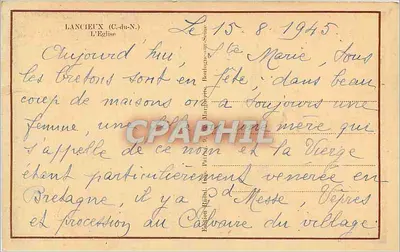 LANCIEUX (C.-du-N.)
L'Eglise
Le 15.8.1945
Aujourd'hui, Ste Marie, tous
les bretons sont en fête; dans beau
coup de maisons on a toujours une
femme, une mère qui
s'appelle de ce nom et la Vierge
étant particulièrement venerée en
Bretagne, il y a gd Messe, Vêpres
et procession au Calvaire du village
CPAPHIL